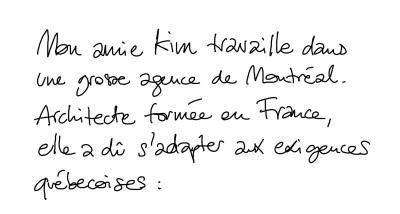 Mon amie Kim travaille dans
une grosse agence de Montréal.
Architecte formée en France,
elle a dû s'adapter aux exigences
québecoises :